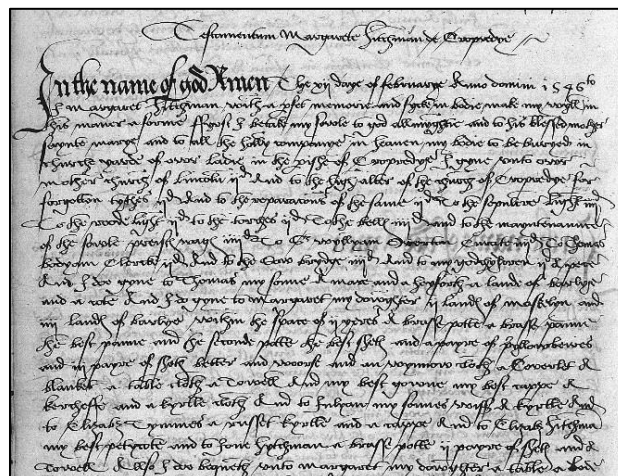 Testamentum Margarete Hitchman de Cropredye
In the name of god Amen The xii daye of februarye Anno domini 1546to
I margaret Hitchman with a pfet memorie and syke in bodie make my wyll in
this maner & forme ffyrst I betake my sowle to god allmyghtie and to his blessed mother
saynte marye and to all the holly companye in heaven my bodie to be buryed in
churche yarde of owr ladie in the pishe of Cropredye I gyve unto owr
mother church of Lincoln iid And to the high alter of the church of Cropredye for
forgotten tythes iid And to the reparacons of the same iid To the sepulcre light iiiid
To the roode light iid to the torches iid To the bells iiiid And to the maintenance
of the iiiid To Sr wyllyam Overton Curate iiiid To Thomas
bodyam Clerke iid And to the Cow brydge iiiid And to my godchyldren iid a pece
And I doo gyve to Thomas my sonne A mare and a heyforth a lande of barlye
and a cote And I do gyve to Margaret my doughter ii lands of maslyn and
iiii lands of barlye within the space of ii yeres A brasse potte a brasse panne
the best panne and the seconde potte the best shete and a payre of pyllowberes
and iii payre of shets better and woorse and an cloth a Coverlet A
blanket a table cloth a Towell And my best gowne my best cappe A
kercheffe and a kyrtle cloth And to my sonnes wiff A kyrtle And
to Elizabeth a russet kyrtle and a cappe And to Elizab hitchman
my best petycote and to Jone hytchman a brasse potte ii payre of shets and A
Towell Also I doo bequeth unto margaret my doughter a table a bord